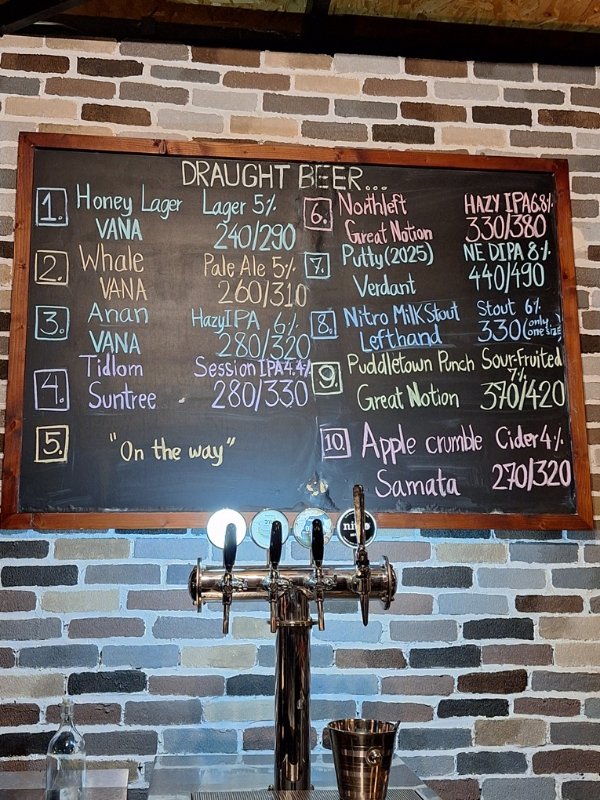 DRAUGHT BEER...
1. Honey Lager Lager 5%
VANA 240/290
2. Whale Pale Ale 5%
VANA 260/310
3. Anan Hazy IPA 6%
VANA 280/320
4. Tidlom Session IPA 4.4%
Suntree 280/330
5. "On the way"
6. Northleft HAZY IPA 6.8%
Great Notion 330/380
7. Putty (2025) NE DIPA 8%
Verdant 440/490
8. Nitro Milk Stout Stout 6%
Lefthand 330 (only one size)
9. Puddletown Punch Sour-Fruited
7%
Great Notion 370/420
10. Apple crumble Cider 4%
Samata 270/320
nitro